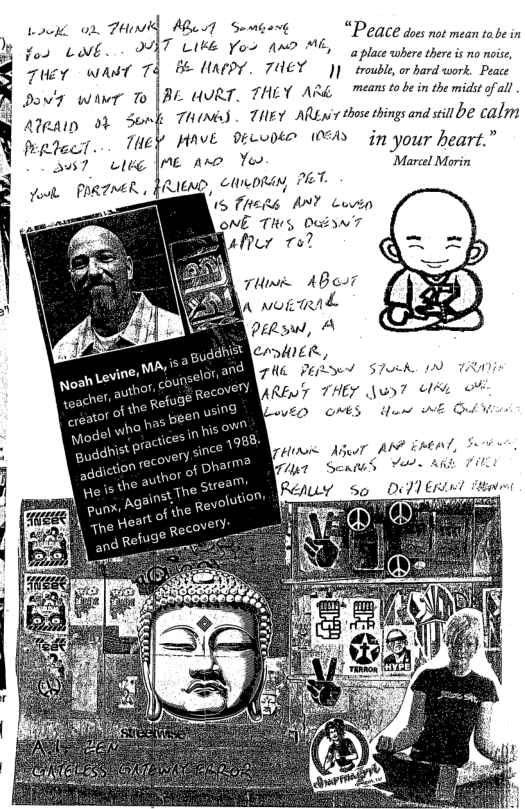 LOOK OR THINK ABOUT SOMEONE
YOU LOVE... JUST LIKE YOU AND ME,
THEY WANT TO BE HAPPY. THEY
DON'T WANT TO BE HURT. THEY ARE
AFRAID OF SOME THINGS. THEY AREN'T
PERFECT... THEY HAVE DELUDED IDEAS
... JUST LIKE ME AND YOU.
YOUR PARTNER, FRIEND, CHILDREN, PET...
IS THERE ANY LOVED
ONE THIS DOESN'T
APPLY TO?
"Peace does not mean to be in
a place where there is no noise,
trouble, or hard work. Peace
means to be in the midst of all
those things and still be calm
in your heart."
Marcel Morin
THINK ABOUT
A NUETRAL
PERSON, A
CASHIER,
THE PERSON STUCK IN TRAFFIC
AREN'T THEY JUST LIKE OUR
LOVED ONES
THINK ABOUT AN ENEMY,
THAT SCARES YOU. ARE THEY
REALLY SO DIFFERENT
Noah Levine, MA, is a Buddhist
teacher, author, counselor, and
creator of the Refuge Recovery
Model who has been using
Buddhist practices in his own
addiction recovery since 1988.
He is the author of Dharma
Punx, Against The Stream,
The Heart of the Revolution,
and Refuge Recovery.
TERROR
HYPE
streetwise
A.I. ZEN
GATELESS GATEWAY ERROR